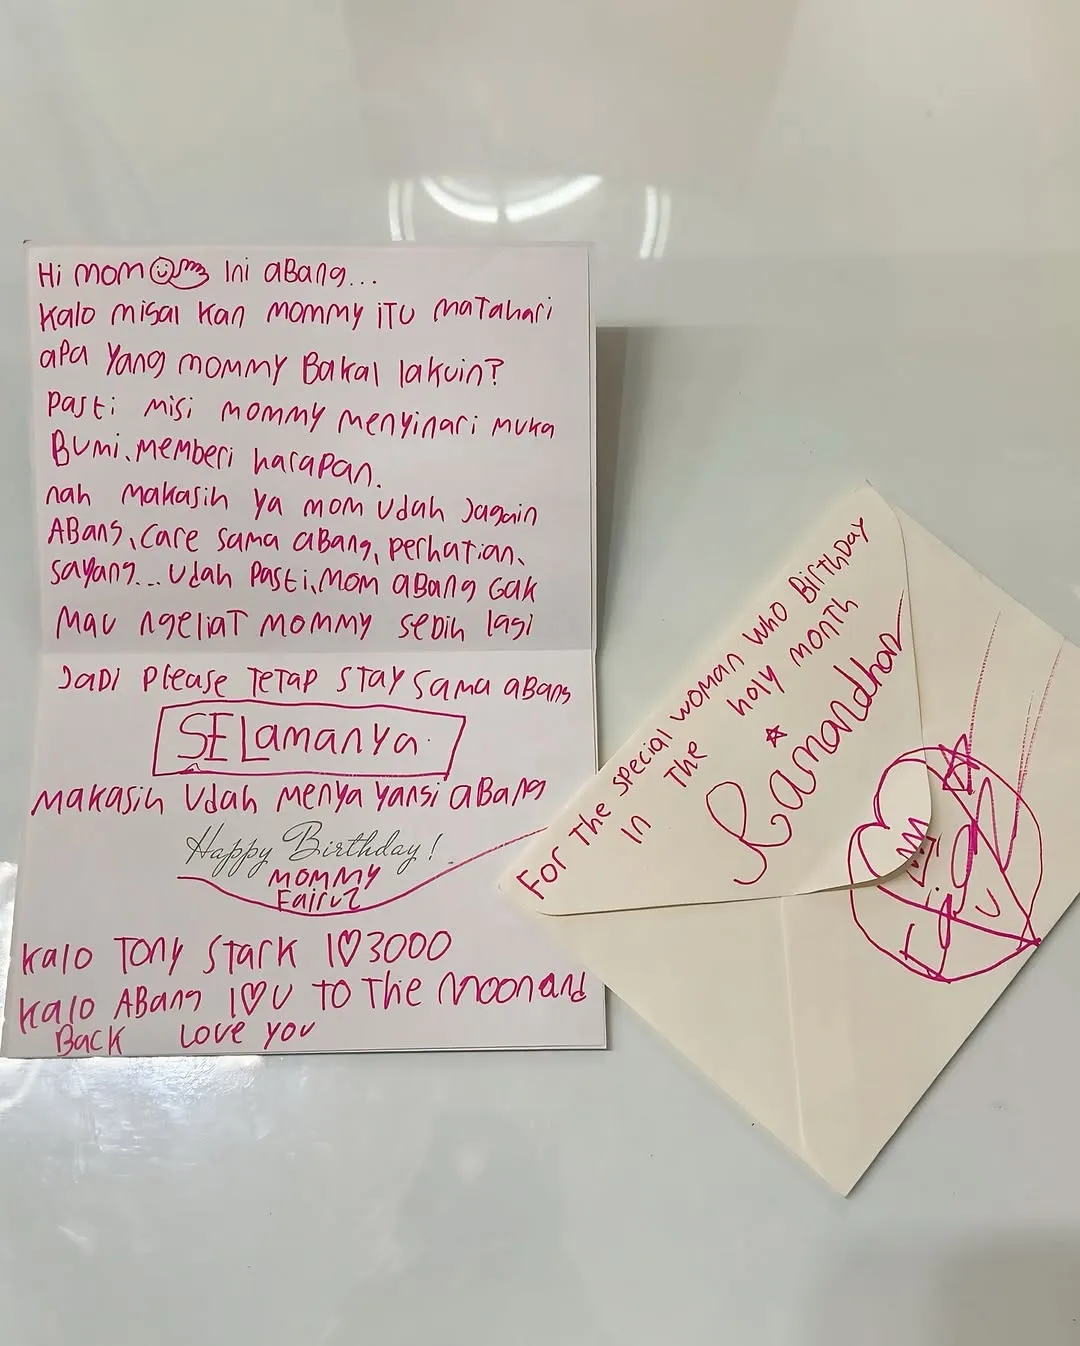 Hi mom ini abang...
kalo misal kan mommy itu matahari
apa yang mommy Bakal lakuin?
pasti misi mommy menyinari muka
Bumi, memberi harapan.
nah makasih ya mom udah jagain
Abang, care sama abang, perhatian,
sayang... udah pasti, mom abang gak
mau ngeliat mommy sedih lagi
Jadi please tetap stay sama abang
SELamanya.
makasih udah menyayangi abang
Happy Birthday!
mommy
Fairuz
kalo Tony Stark I♡3000
kalo Abang I♡U To The moon and
Back Love you
For The special woman who Birthday
in The holy month
☆ Ramandhan